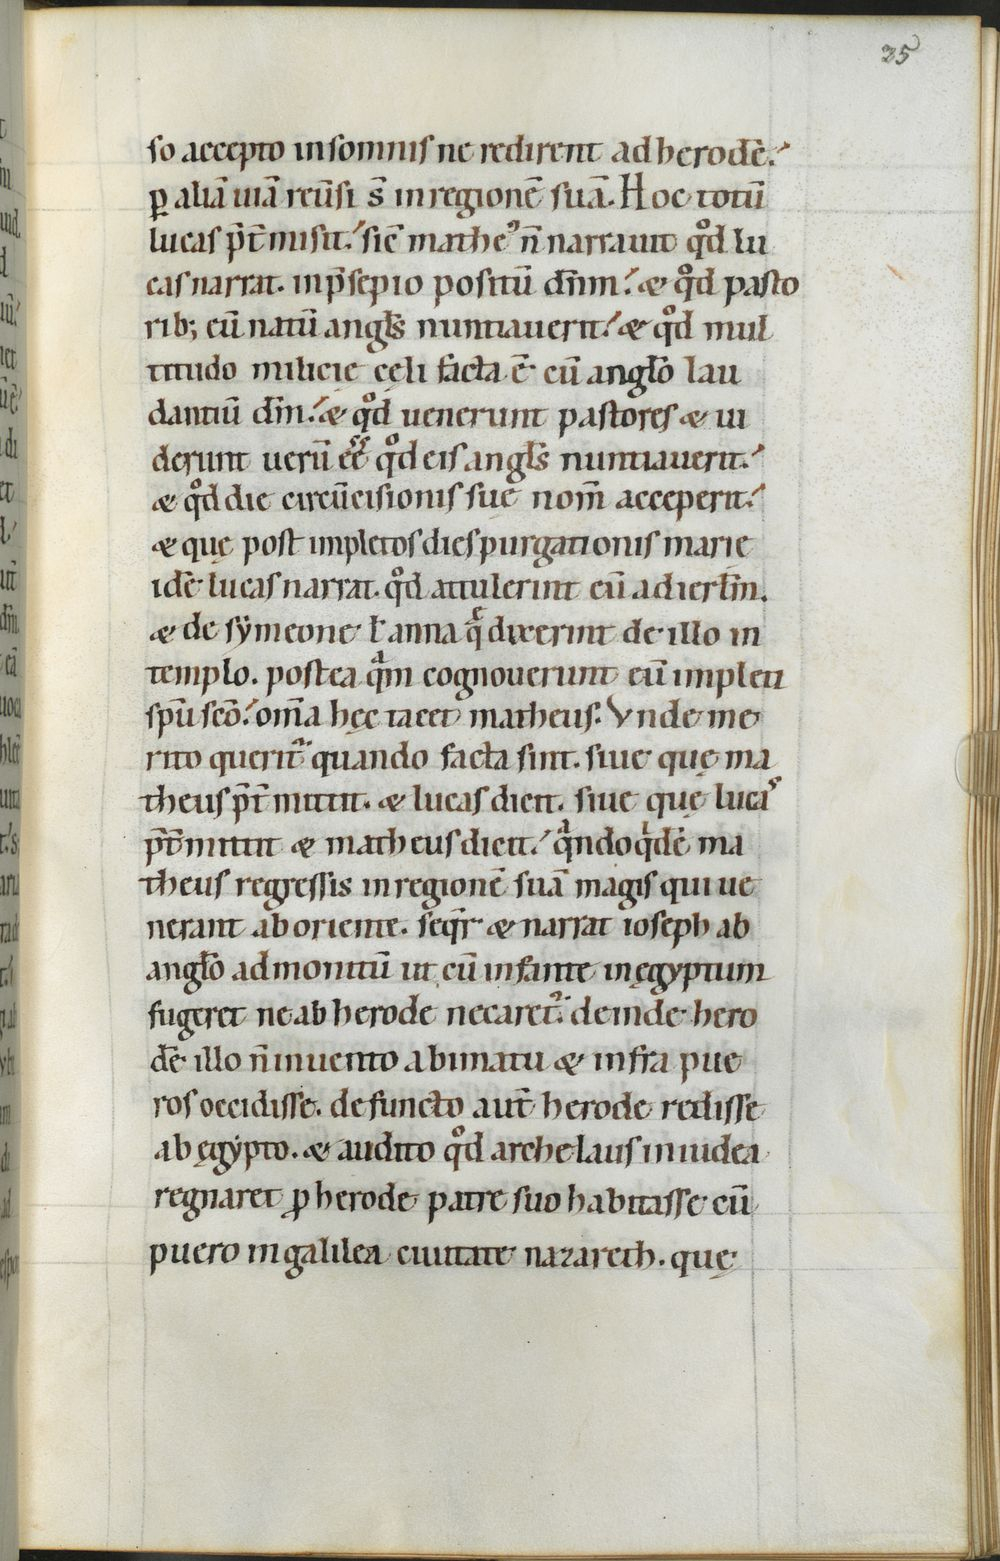 35
so accepto insomnis ne redirent ad herodē.
ꝑ aliā uiā reūsi s̄ in regionē suā. Hoc totū
lucas p̄t̄misit. sic̄ matheꝰ n̄ narrauit qͦd lu
cas narrat. in p̄sepio positū dn̄m. & qͦd pasto
rib; cū natū angl̄s nuntiauerit. & qͦd mul
titudo milicię cęli facta ē cū anglo lau
dantiū dm̄. & qͦd uenerunt pastores & ui
derunt uerū ēē qͦd eis angl̄s nuntiauerit.
& qͦd die circūcisionis suę nom̄ acceperit.
& quę post impletos dies purgationis marię
idē lucas narrat. qͦd attulerint eū ad ierl̄m.
& de symeone ł anna q̄ dixerint de illo in
templo. postea qᵃm cognouerunt eū impleti
sp̄u scō. om̄a hęc tacet matheus. Vnde me
rito querit᷑ quando facta sint. siue quę ma
theus p̄t̄mittit. & lucas dicit. siue quę lucaˢ
p̄t̄mittit & matheus dicit. qᵃndoqⁱdē ma
theus regressis in regionē suā magis qui ue
nerant ab oriente. seqr̄ & narrat ioseph ab
anglo admonitū ut cū infante in ęgyptum
fugeret ne ab herode necaret᷑. deinde hero
dē illo n̄ inuento a bimatu & infra pue
ros occidisse. defuncto aut̄ herode redisse
ab ęgypto. & audito qͦd archelaus in iudea
regnaret ꝓ herode patre suo habitasse cū
puero in galilea ciuitate nazareth. quę